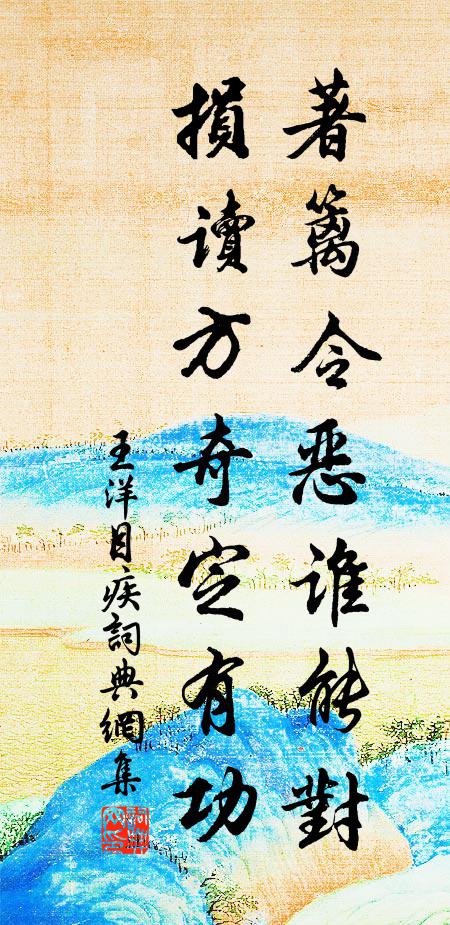 著篱令恶誰能對
損讀方奇定有功
王洋目疾詞典網集